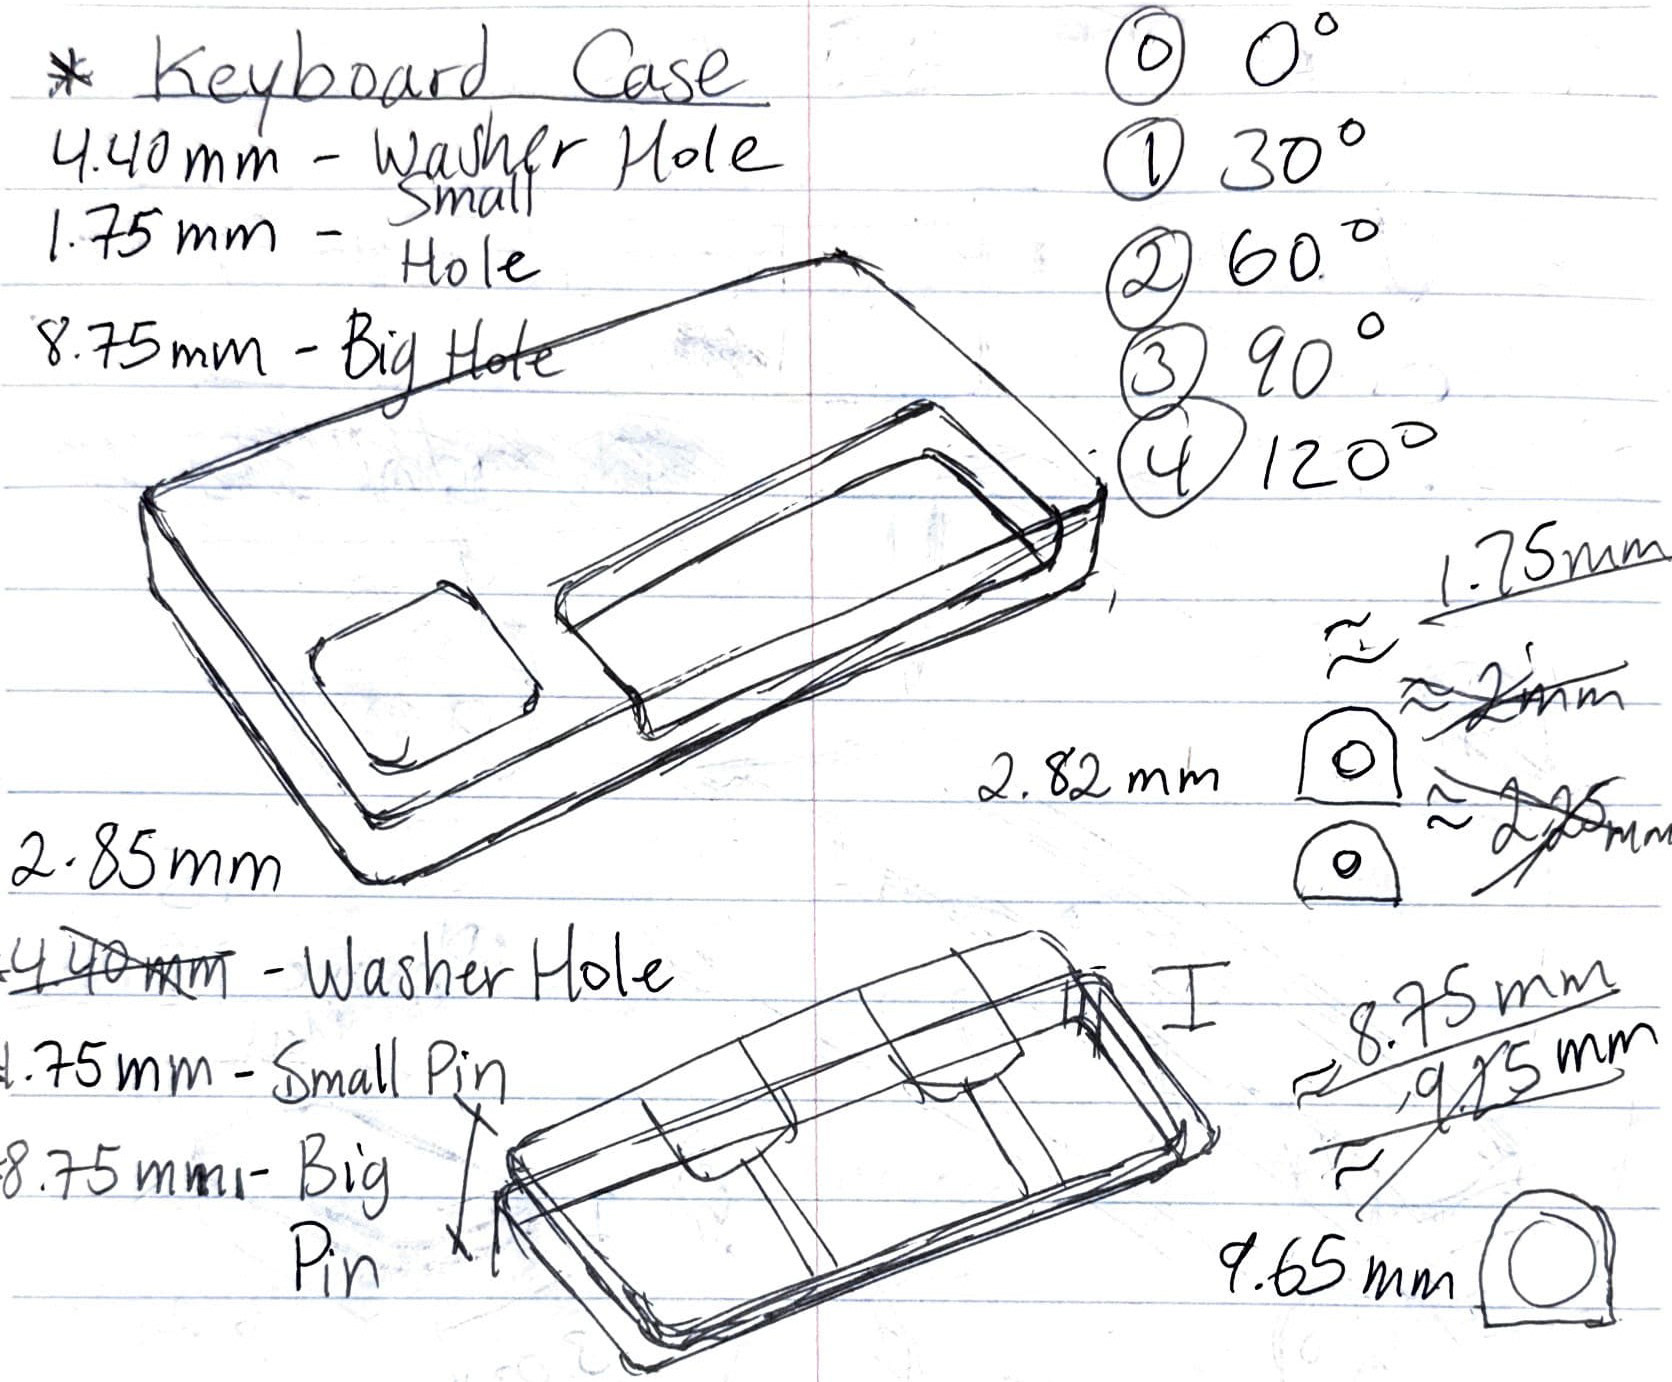 * Keyboard Case
4.40mm - Washer Hole
1.75mm - Small
Hole
8.75mm - Big Hole
0 0°
1 30°
2 60°
3 90°
4 120°
≈ 1.75mm
≈ 2mm
2.82mm
≈ 2.25mm
2.85mm
4.40mm - Washer Hole
1.75mm - Small Pin
8.75mm - Big
Pin
I
≈ 8.75mm
≈ 9.25mm
9.65mm